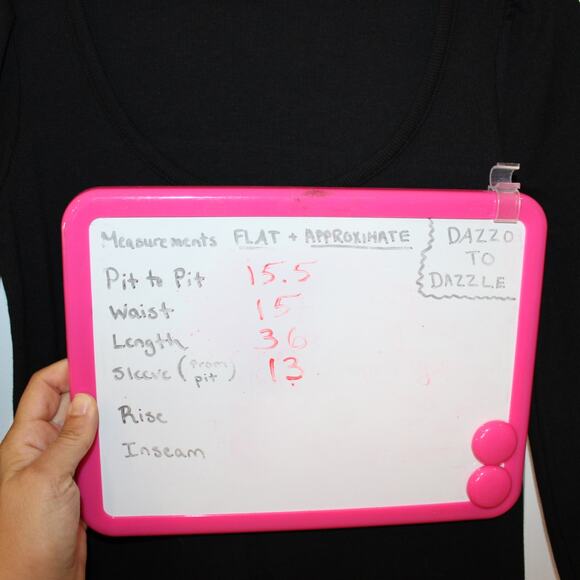 Measurements FLAT + APPROXIMATE
DAZZO
TO
DAZZLE
Pit to Pit 15.5
Waist 15
Length 36
Sleeve (from pit) 13
Rise
Inseam